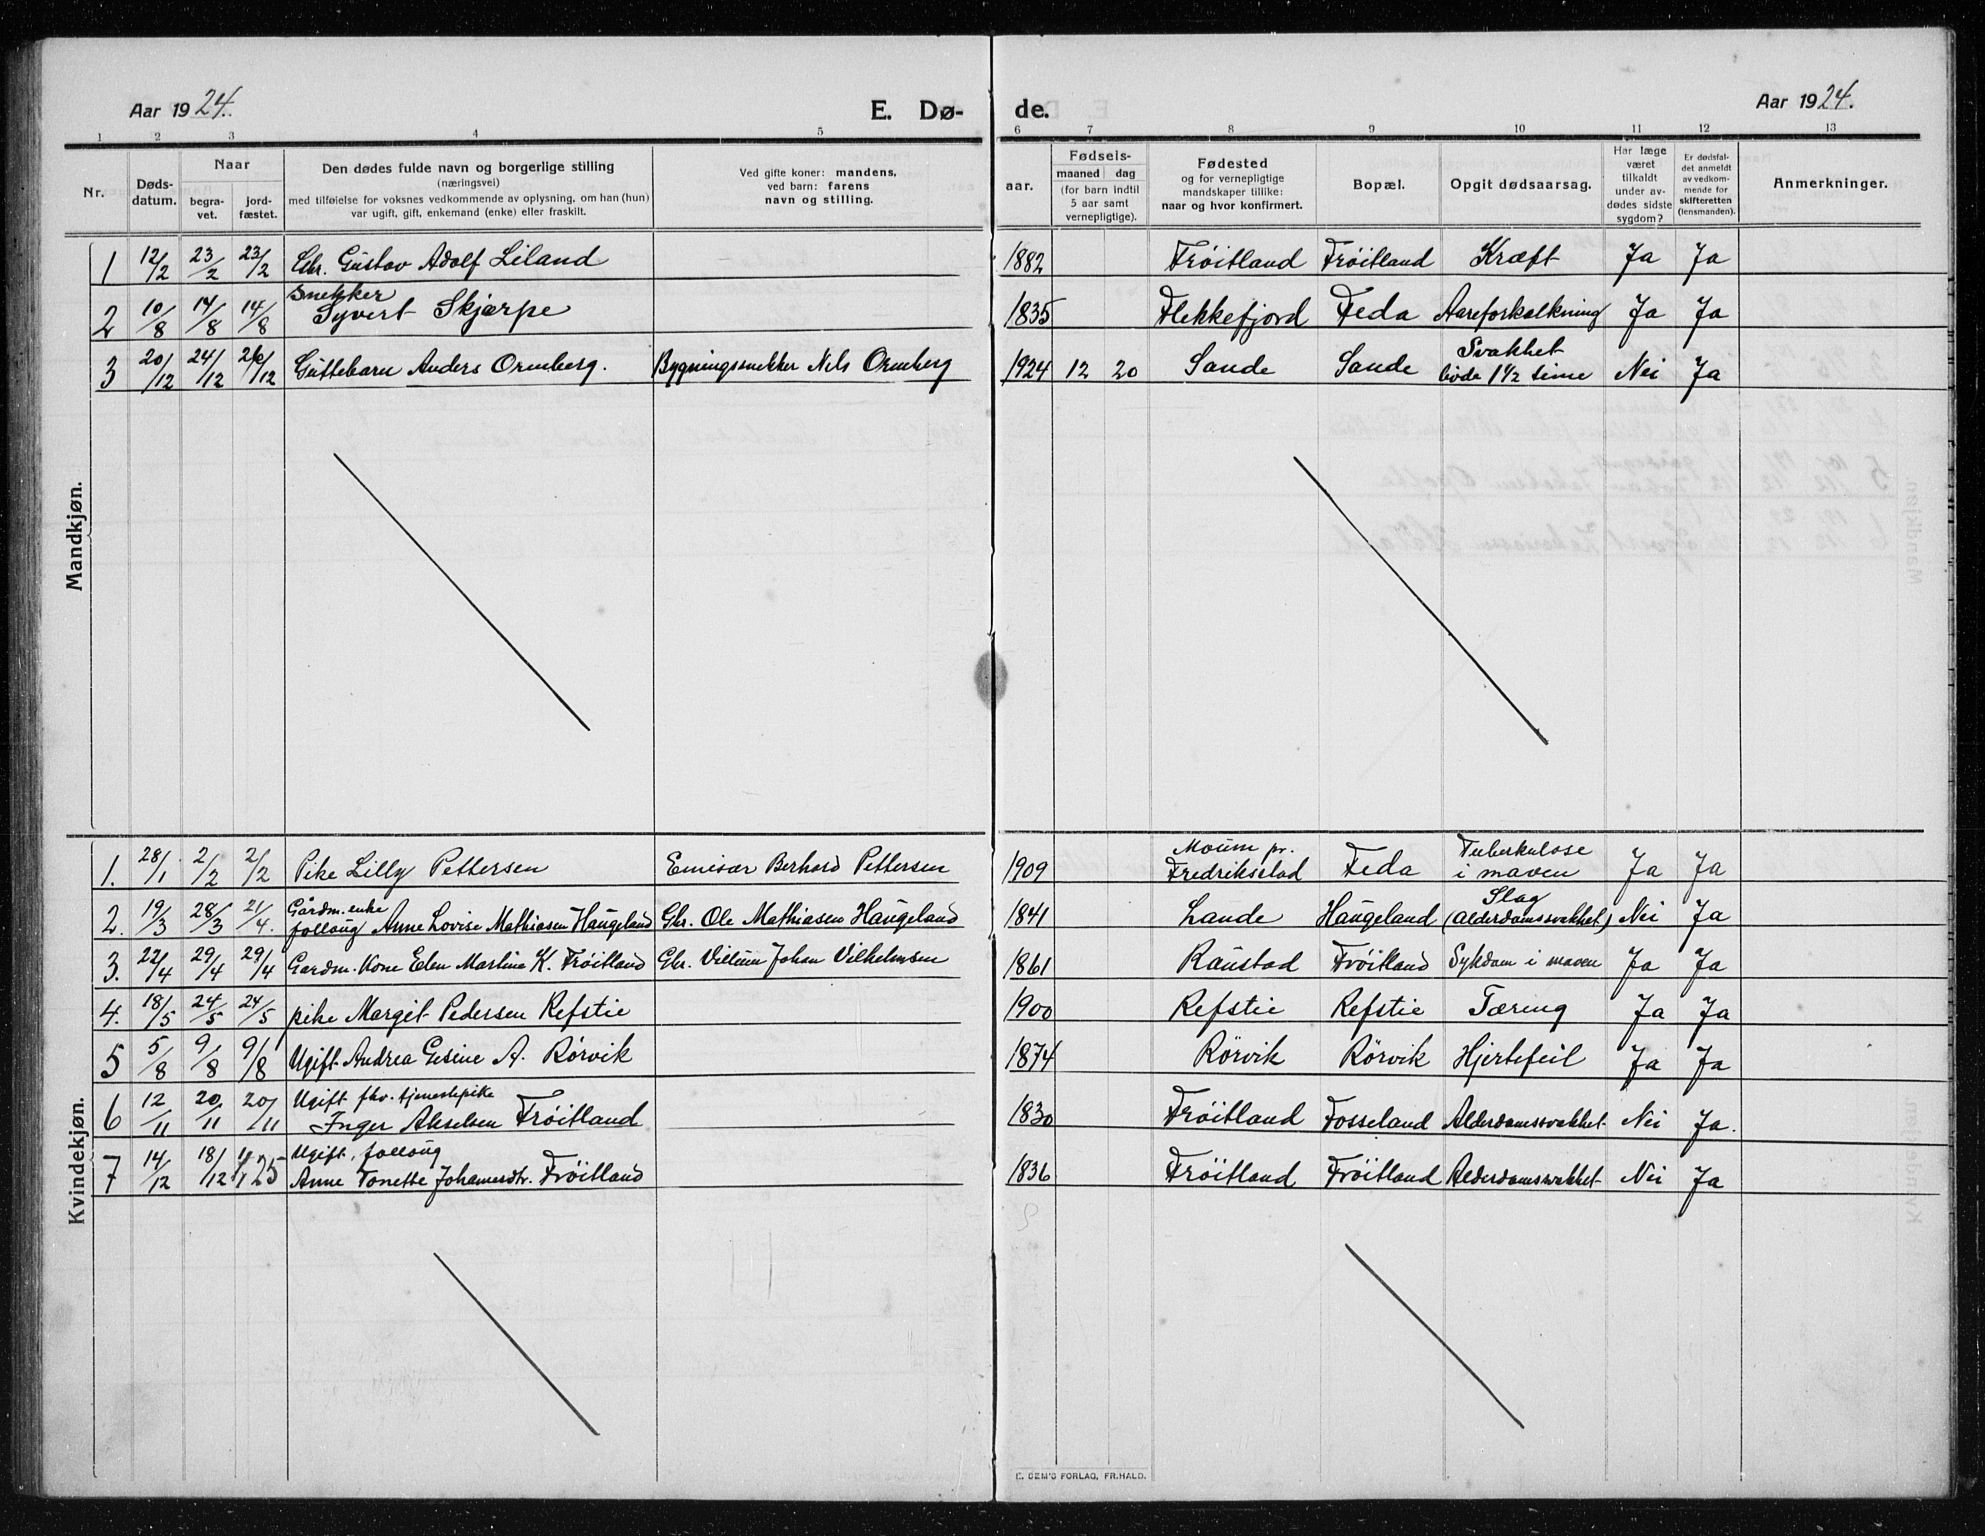 Aar 1924. E. Dø- de. Aar 1924.
1 2 3 4 5 6 7 8 9 10 11 12 13
Nr. Døds-datum. Naar begra-vet. jord-fæstet. Den dødes fulde navn og borgerlige stilling (næringsvei) med tilføielse for voksnes vedkommende av oplysning, om han (hun) var ugift, gift, enkemand (enke) eller fraskilt. Ved gifte koner: mandens, ved barn: farens navn og stilling. Fødsels- aar. maaned dag (for barn indtil 5 aar samt vernepligtige). Fødested og for vernepligtige mandskaper tillike: naar og hvor konfirmert. Bopæl. Opgit dødsaarsag. Har læge været tilkaldt under av-dødes sidste sygdom? Er dødsfal-det anmeldt av vedkom-mende for skifteretten (lensmanden). Anmerkninger.
Mandkjøn.
1 12/2 23/2 23/2 Gbr. Gustav Adolf Liland 1882 Frøitland Frøitland Kræft Ja Ja
2 10/8 14/8 14/8 Snekker Syvert Skjærpe 1835 Flekkefjord Feda Aareforkalkning Ja Ja
3 20/12 24/12 26/12 Guttebarn Anders Ormberg. Bygningssnekker Nils Ormberg 1924 12 20 Sande Sande Svakhet levde 1½ time Nei Ja
Kvindekjøn.
1. 28/1 2/2 2/2 Pike Lilly Pettersen Emisær Berhard Pettersen 1909 Moum pr. Fredriksstad Feda Tuberkulose i maven Ja Ja
2. 19/3 28/3 21/4. Gårdm. enke follaug Anne Lovise Mathiasen Haugeland Gbr. Ole Mathiasen Haugeland 1841 Lande Haugeland Slag (Alderdomssvakhet) Nei Ja
3. 22/4 29/4 29/4 Gardm. Kone Elen Martine K. Frøitland Gbr. Villum Johan Vilhelmsen 1861 Raustad Frøitland Sykdom i maven Ja Ja
4. 18/5 24/5 24/5 pike Margit Pedersen Refstie 1900 Refstie Refstie Tæring Ja Ja
5 5/8 9/8 9/8 Ugift Andrea Gesine A. Rørvik 1874 Rørvik Rørvik Hjertefeil Ja Ja
6 12/11 20/11 20/11 Ugift fhv. tjenestepike Inger Akselsen Frøitland 1830 Frøitland Fosseland Alderdomssvakhet Nei Ja.
7 14/12 18/12 1/1 25 Ugift, follaug Anne Tonette Johannesdtr. Frøitland 1836 Frøitland Frøitland Alderdomssvakhet Nei Ja
E. SEM'S FORLAG, FR.HALD.